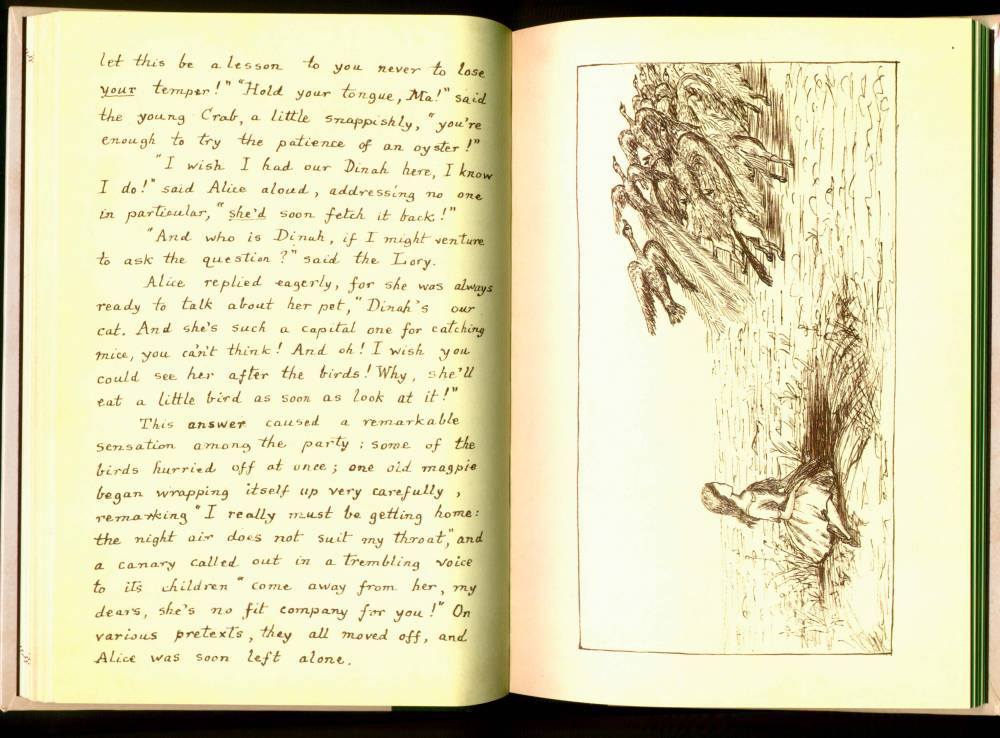 let this be a lesson to you never to lose
your temper!" "Hold your tongue, Ma!" said
the young Crab, a little snappishly, "you're
enough to try the patience of an oyster!"
"I wish I had our Dinah here, I know
I do!" said Alice aloud, addressing no one
in particular, "she'd soon fetch it back!"
"And who is Dinah, if I might venture
to ask the question?" said the Lory.
Alice replied eagerly, for she was always
ready to talk about her pet, "Dinah's our
cat. And she's such a capital one for catching
mice, you can't think! And oh! I wish you
could see her after the birds! Why, she'll
eat a little bird as soon as look at it!"
This answer caused a remarkable
sensation among the party: some of the
birds hurried off at once; one old magpie
began wrapping itself up very carefully,
remarking "I really must be getting home:
the night air does not suit my throat," and
a canary called out in a trembling voice
to its children "come away from her, my
dears, she's no fit company for you!" On
various pretexts, they all moved off, and
Alice was soon left alone.